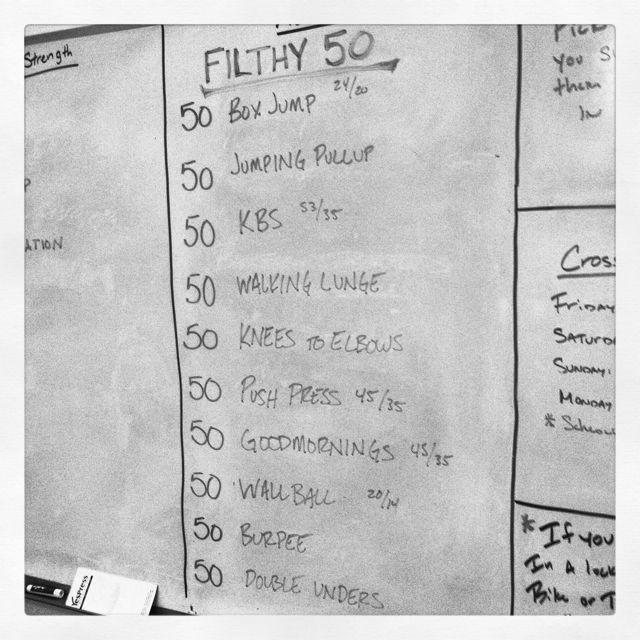 Strength
ATION
FILTHY 50
50 BOX JUMP 24/20
50 JUMPING PULLUP
50 KBS 53/35
50 WALKING LUNGE
50 KNEES TO ELBOWS
50 PUSH PRESS 45/35
50 GOODMORNINGS 45/35
50 WALLBALL 20/14
50 BURPEE
50 DOUBLE UNDERS
you
them
IN
Cros
FRIDAY
SATURD
SUNDAY
MONDAY
* IF you
IN A lock
BIKE OR T